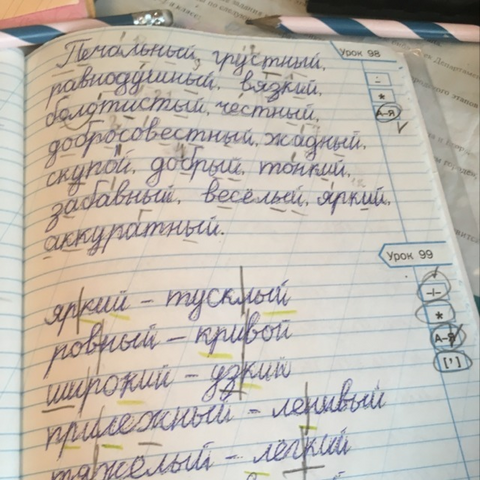 Урок 98
Печальный, грустный,
равнодушный, вязкий,
÷
*
болотистый, честный,
А-Я
добросовестный, жадный,
скупой, добрый, тонкий,
забавный, весёлый, яркий,
аккуратный.
Урок 99
яркий – тусклый
÷
*
ровный – кривой
А-Я
широкий – узкий
[']
прилежный – ленивый
тяжёлый – лёгкий